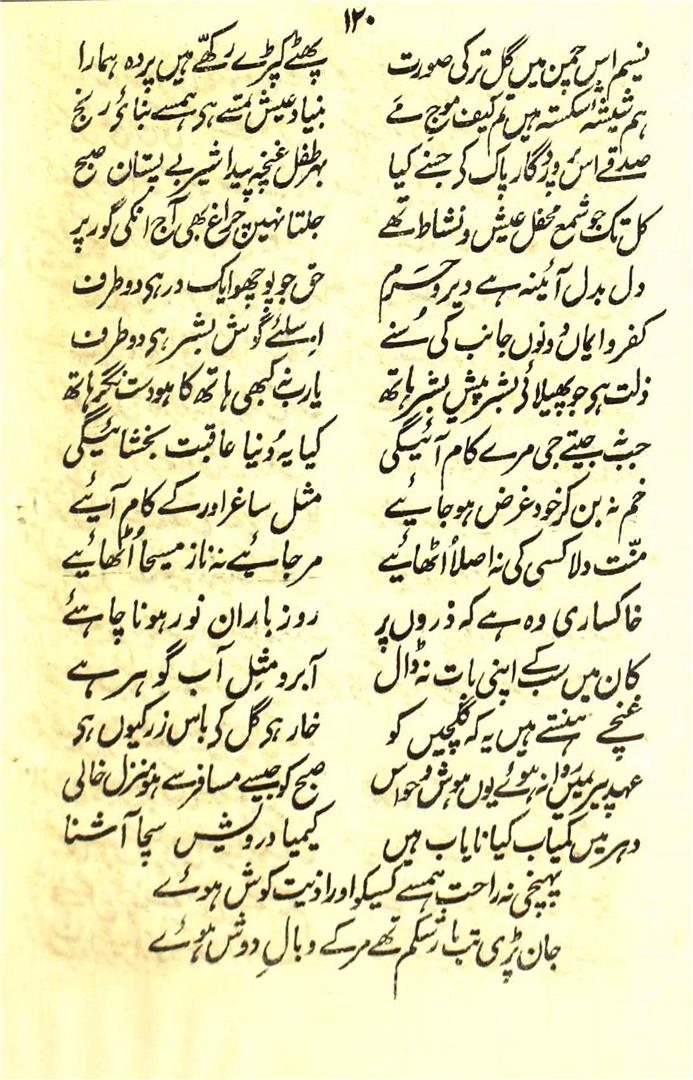 ۱۲۰
نسیم اس چمن میں گل تر کی صورت پھٹے کپڑے رکھے ہیں پردہ ہمارا
ہم شیشۂ شکستہ ہیں تم کیف موج مے بنیاد عیش تمسے ہی ہمسے بنائ رنج
صدقے اس پروردگار پاک کی جسنے کیا بہر طفل غنچہ پیدا شیر بے پستان صبح
کل تک جو شمع محفل عیش و نشاط تھے جلتا نہین چراغ بھی آج انکی گور پر
دل بدل آئنہ ہے دیر و حرم حق جو پوچھو ایک در ہی دو طرف
کفر و ایماں دونوں جانب کی سُنے اسلئے گوش بشر ہی دو طرف
ذلت ہی جو پھیلائی بشر پیش بشر ہاتھ یارب نہ کبھی ہاتھ کا ہو دست نگر ہاتھ
جیتے جی مرے کام آئیگی کیا یہ دُنیا عاقبت بخشائیگی
خم نہ بن کر خود غرض ہو جایئے مثل ساغر اور کے کام آیئے
منّت دلا کسی کی نہ اصلا اُٹھایئے مر جایئے نہ ناز مسیحا اُٹھایئے
خاکساری وہ ہے کہ ذروں پر روز باران نور ہونا چاہئے
کان میں سب کے اپنی بات نہ ڈال آبرو مثل آب گوہر ہے
غنچے ہنستے ہیں یہ کہ گلچیں کو خار ہی گل کی باس زر کیوں ہی
عہد پیر میں روانہ ہوئے یوں ہوش و حواس صبح کو جیسے مسافر سے ہو منزل خالی
دہر میں کمیاب کیا نایاب ہیں کیمیا درویش سچا آشنا
پہنچی نہ راحت ہمسے کسیکو اور اذیت کوش ہوئے
جان پڑی تب بار شکم تھے مر کے وبالِ دوش ہوئے